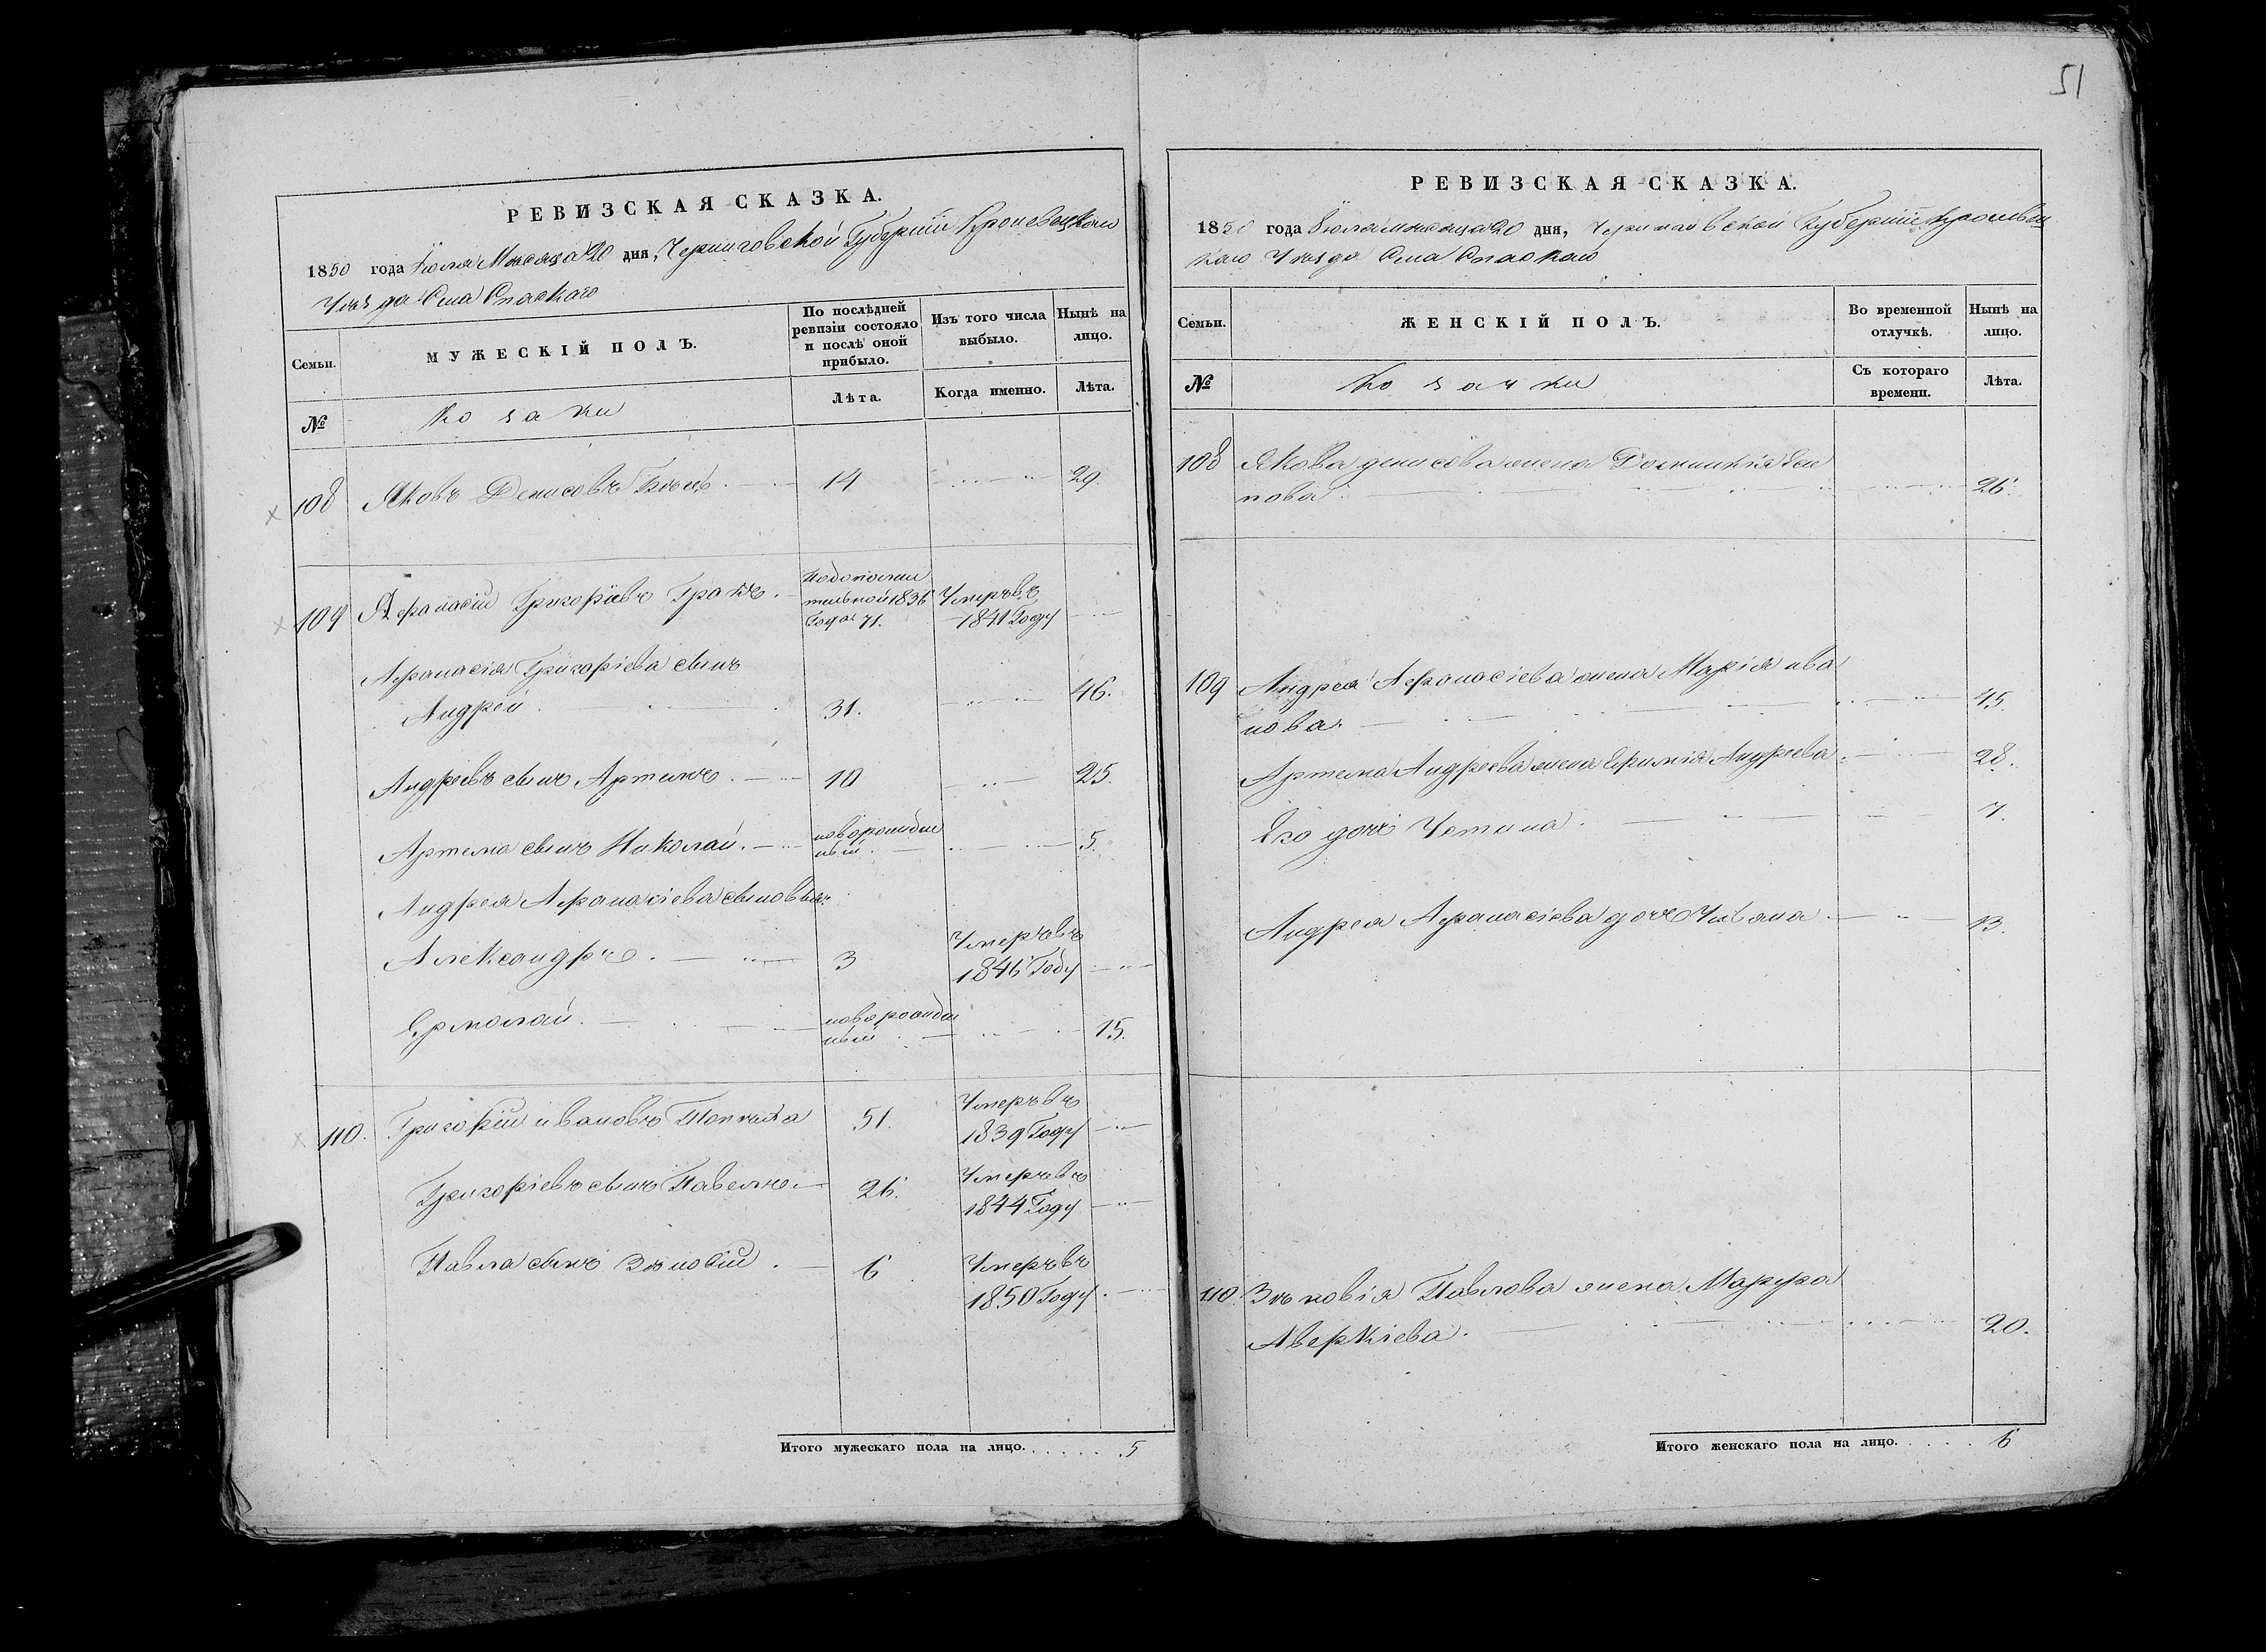 51
РЕВИЗСКАЯ СКАЗКА.
1850 года Июля Месяца 20 дня, Черниговской Губернiи Кролевецкаго
Уезда Села Спаскаго
Семьи.
МУЖЕСКІЙ ПОЛЪ.
По послѣдней ревизіи состояло и послѣ оной прибыло.
Изъ того числа выбыло.
Нынѣ на лицо.
№
Козаки
Лѣта.
Когда именно.
Лѣта.
108 Яковъ Денисовъ 14 29.
109 Афанасій Григоріевъ
Подополни
тельной 1836
Года 71.
Умеръ въ
1841 Году
Афанасія Григоріева сынъ
Андрей. 31. 46.
Андреевъ сынъ Артемъ. 10 25.
Артема сынъ Николай. новорожден
ный. 5.
Андрея Афанасіева сыновья:
Александръ. 3 Умеръ въ
1846 Году
Ермолай. новорожден
ный 15.
110. Григорій ивановъ 51. Умеръ въ
1839 Году
Григоріевъ сынъ Павелъ 26. Умеръ въ
1844 Году
Павла сынъ Зѣновій. 6 Умеръ въ
1850 Году
Итого мужескаго пола на лицо. 5
РЕВИЗСКАЯ СКАЗКА.
1850 года Июля месяца 20 дня, Черниговской Губерніи Кролевец
каго Уезда Села Спаскаго
Семьи.
ЖЕНСКІЙ ПОЛЪ.
Во временной отлучкѣ.
Нынѣ на лицо.
№
Козачки
Съ котораго времени.
Лѣта.
108 Якова денисова жена
26.
109 Андрея Афанасіева жена Марія ива
нова. 45.
Артема Андреева жена Ефимія Андреева. 28.
Его дочь Устина. 7.
Андрея Афанасіева дочь Ульяна. 13.
110. Зѣновія Павлова жена Марфа
Аверкіева. 20.
Итого женскаго пола на лицо. 6